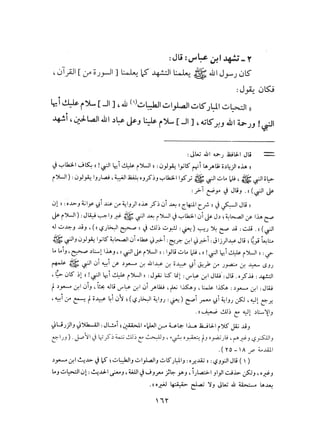 ٢ - تشهد ابن عباس: قال:
كان رسول الله ﷺ يعلمنا التشهد كما يعلمنا [السورة من] القرآن،
فكان يقول:
« التحيات المباركات الصلوات الطيبات(١) لله، [الـ] سلام عليك أيها
النبي! ورحمة الله وبركاته، [الـ] سلام علينا وعلى عباد الله الصالحين، أشهد
= قال الحافظ رحمه الله تعالى:
« هذه الزيادة ظاهرها أنهم كانوا يقولون: « السلام عليك أيها النبي! » بكاف الخطاب في
حياة النبي ﷺ، فلما مات النبي ﷺ تركوا الخطاب وذكروه بلفظ الغيبة، فصاروا يقولون: « السلام
على النبي ». وقال في موضع آخر:
« قال السبكي في « شرح المنهاج » بعد أن ذكر هذه الرواية من عند أبي عوانة وحده: إن
صح هذا عن الصحابة؛ دل على أن الخطاب في السلام بعد النبي ﷺ غير واجب فيقال: ( السلام على
النبي ). قلت: قد صح بلا ريب ( يعني: لثبوت ذلك في « صحيح البخاري » )، وقد وجدت له
متابعاً قوياً، قال عبد الرزاق: أخبرني ابن جريج: أخبرني عطاء أن الصحابة كانوا يقولون والنبي ﷺ
حي: « السلام عليك أيها النبي »، فلما مات قالوا: « السلام على النبي »، وهذا إسناد صحيح، وأما ما
روى سعيد بن منصور من طريق أبي عبيدة بن عبد الله بن مسعود عن أبيه أن النبي ﷺ علمهم
التشهد؛ فذكره. قال: فقال ابن عباس: إنما كنا نقول: « السلام عليك أيها النبي! » إذ كان حياً،
فقال ابن مسعود: هكذا علمنا، وهكذا نعلم، فظاهر أن ابن عباس قاله بحثاً، وأن ابن مسعود لم
يرجع إليه، لكن رواية أبي معمر أصح ( يعني: رواية البخاري )؛ لأن أبا عبيدة لم يسمع من أبيه،
والإسناد إليه مع ذلك ضعيف ».
وقد نقل كلام الحافظ هذا جماعة من العلماء المحققين؛ أمثال: القسطلاني والزرقاني
واللكنوي وغيرهم، فارتضوه ولم يتعقبوه بشيء، وللبحث مع ذلك تتمة ذكرتها في الأصل. ( وراجع
المقدمة ص ١٨ - ٢٥ ).
(١) قال النووي: « تقديره: والمباركات والصلوات والطيبات؛ كما في حديث ابن مسعود
وغيره، ولكن حذفت الواو اختصاراً، وهو جائز معروف في اللغة، ومعنى الحديث: إن التحيات وما
بعدها مستحقة لله تعالى ولا تصلح حقيقتها لغيره ».
١٦٢